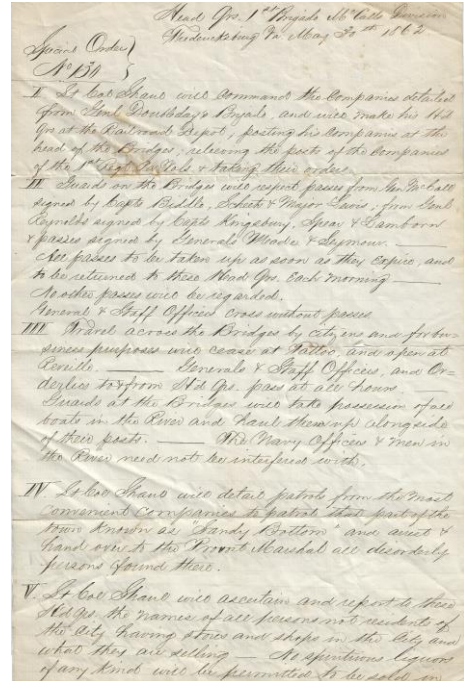 Head Qrs. 1st Brigade McCalls Division
Fredericksburg Va May 30th 1862
Special Order
No 130
I Lt Col Shaul will command the Companies detailed
from Genl Doubleday's Brigade, and will make his Hd
Qrs at the Railroad Depot, posting his Companies at the
head of the Bridges, relieving the posts of the Companies
of the 1st Regt & taking their orders
II Guards on the Bridges will respect passes from Gen McCall
signed by Capts Biddle, Scheetz & Major Lewis; from Genl
Reynolds signed by Capts Kingsbury, Spear & Lamborn
& passes signed by Generals Meade & Seymour.
All passes to be taken up as soon as they expire, and
to be returned to these Head Qrs. each morning
No other passes will be regarded.
General & Staff Officers cross without passes
III Travel across the Bridges by citizens and for bu-
siness purposes will cease at Tattoo, and open at
Reveille. Generals & Staff Officers, and Or-
derlies to & from Hd Qrs. pass at all hours.
Guards at the Bridges will take possession of all
boats in the River and haul them up alongside
of their posts. The Navy Officers & men in
the River need not be interfered with.
IV Lt Col Shaul will detail patrols from the most
convenient companies to patrol that part of the
town known as "Sandy Bottom" and arrest &
hand over to the Provost Marshal all disorderly
persons found there.
V. Lt Col Shaul will ascertain and report to these
Hd Qrs. the names of all persons not residents of
the City having stores and shops in the City and
what they are selling No spirituous liquors
of any kind will be permitted to be sold in